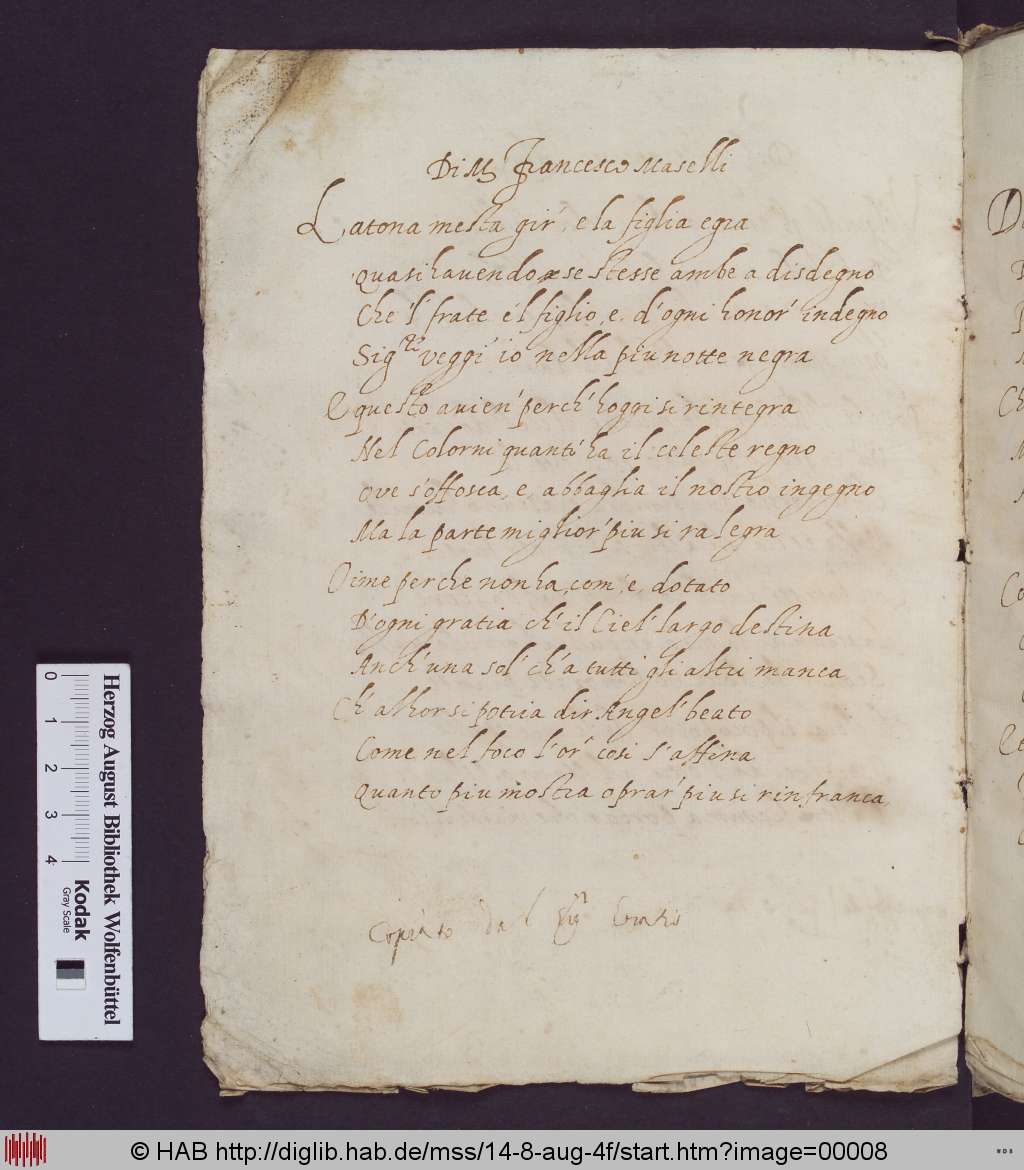 Di M. Francesco Maselli
Latona mesta gir', e la figlia egra
quasi havendo se stesse ambe a disdegno
Che'l frate e'l figlio, e, d'ogni honor' indegno
Sig.re veggi' io nella piu notte negra
E questo avien' perch' hoggi si rintegra
Nel Colorni quanti ha il celeste regno
ove s'offosca, e, abbaglia il nostro ingegno
Ma la parte miglior' piu si ralegra
Oime perche non ha, com', e, dotato
D'ogni gratia ch'il Ciel' largo destina
Anch'una sol' ch'a tutti gli altri manca
Ch'alhor si potria dir Angel' beato
Come nel foco l'or' cosi s'affina
quanto piu mostra oprar' piu si rinfranca,
Copiato da l
0 1 2 3 4
Herzog August Bibliothek Wolfenbüttel
Kodak
Gray Scale
© HAB http://diglib.hab.de/mss/14-8-aug-4f/start.htm?image=00008